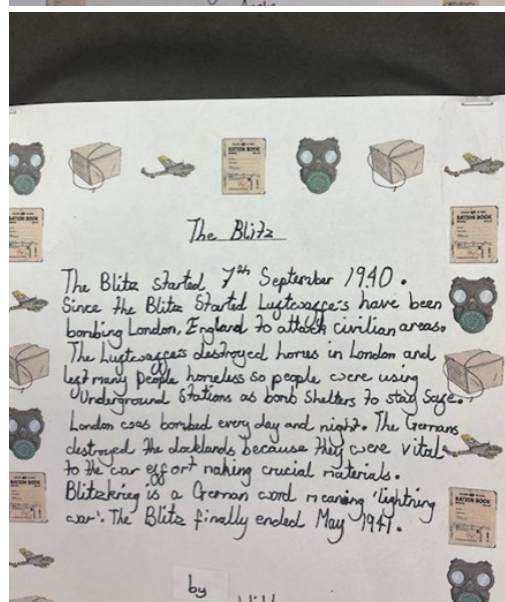 RATION BOOK
The Blitz
The Blitz started 7th September 1940.
Since the Blitz Started Luftwaffe's have been
bombing London, England to attack civilian areas.
The Luftwaffe's destroyed homes in London and
left many people homeless so people were using
Underground Stations as bomb Shelters to stay safe.
London was bombed every day and night. The Germans
destroyed the docklands because they were vital
to the war effort making crucial materials.
Blitzkrieg is a German word meaning 'lightning
war'. The Blitz finally ended May 1941.
by